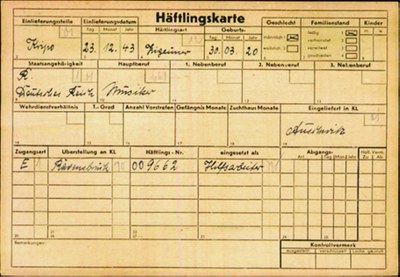 Häftlingskarte
Einlieferungsstelle Einlieferungsdatum Häftlingsart Geburts- Geschlecht Familienstand Kinder
Tag Monat Jahr Tag Monat Jahr männlich ledig
Kripo 23. 12. 43 Zigeuner 30. 03. 20 verheiratet
verwitwet
geschieden
Staatsangehörigkeit Hauptberuf 1. Nebenberuf 2. Nebenberuf 3. Nebenberuf
R
Deutsches Reich Musiker
Wehrdienstverhältnis T.-Grad Anzahl Vorstrafen Gefängnis Monate Zuchthaus Monate Eingeliefert in KL
Auschwitz
Zugangsart Überstellung an KL Häftlings-Nr. eingesetzt als Abgangs-
E Ravensbrück 009662 Hilfsarbeiter
Bemerkungen:
Kontrollvermerk